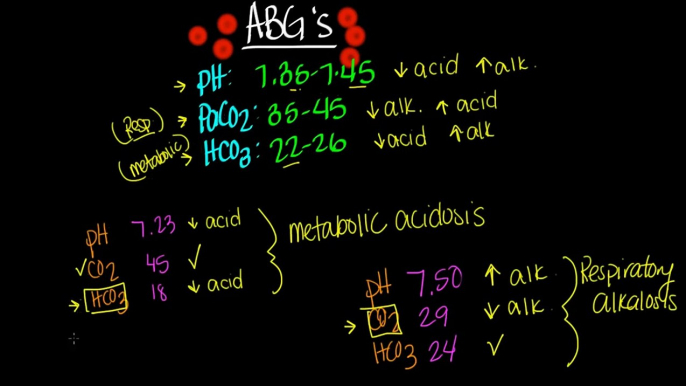 ABG's
→ pH: 7.35-7.45 ↓ acid ↑ alk.
(Resp) → PaCO2: 35-45 ↓ alk. ↑ acid
(metabolic) → HCO3: 22-26 ↓ acid ↑ alk
pH 7.23 ↓ acid
✓ CO2 45 ✓
→ HCO3 18 ↓ acid
metabolic acidosis
pH 7.50 ↑ alk.
→ CO2 29 ↓ alk.
HCO3 24 ✓
Respiratory
alkalosis